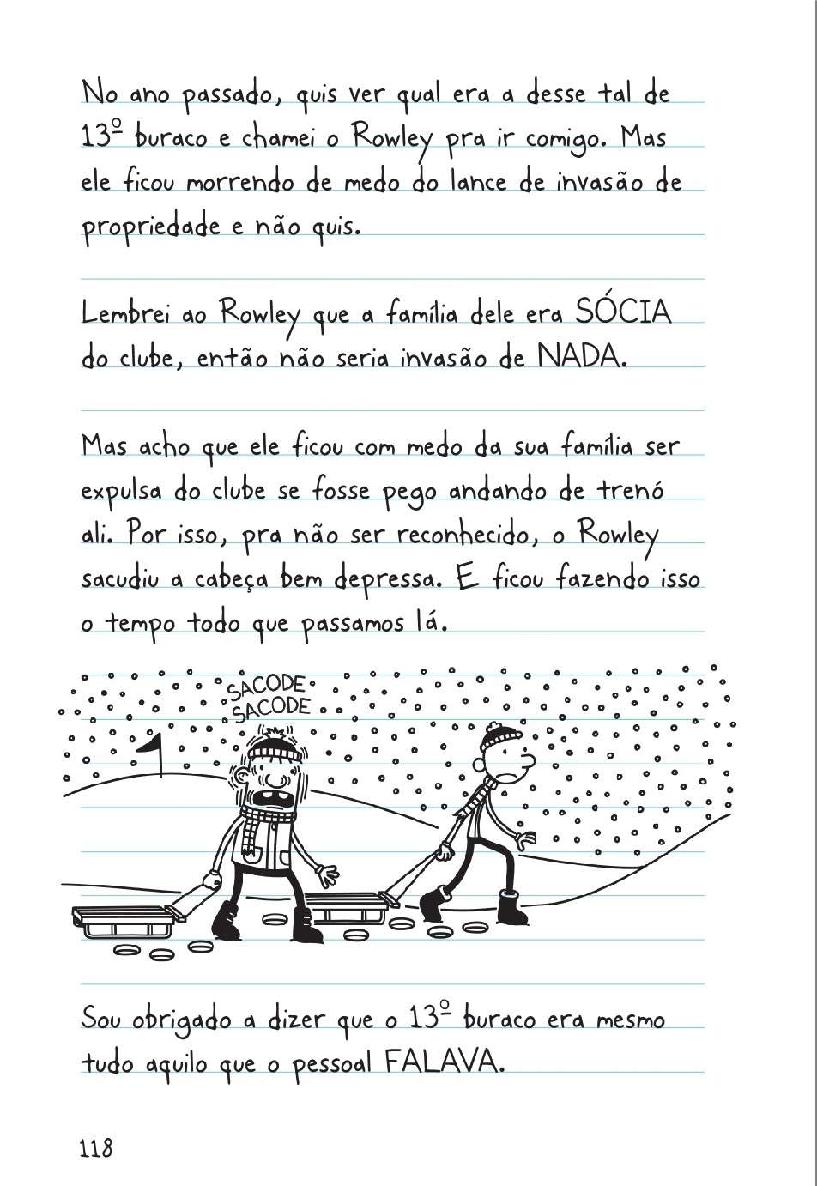 No ano passado, quis ver qual era a desse tal de
13º buraco e chamei o Rowley pra ir comigo. Mas
ele ficou morrendo de medo do lance de invasão de
propriedade e não quis.
Lembrei ao Rowley que a família dele era SÓCIA
do clube, então não seria invasão de NADA.
Mas acho que ele ficou com medo da sua família ser
expulsa do clube se fosse pego andando de trenó
ali. Por isso, pra não ser reconhecido, o Rowley
sacudiu a cabeça bem depressa. E ficou fazendo isso
o tempo todo que passamos lá.
SACODE
SACODE
Sou obrigado a dizer que o 13º buraco era mesmo
tudo aquilo que o pessoal FALAVA.
118